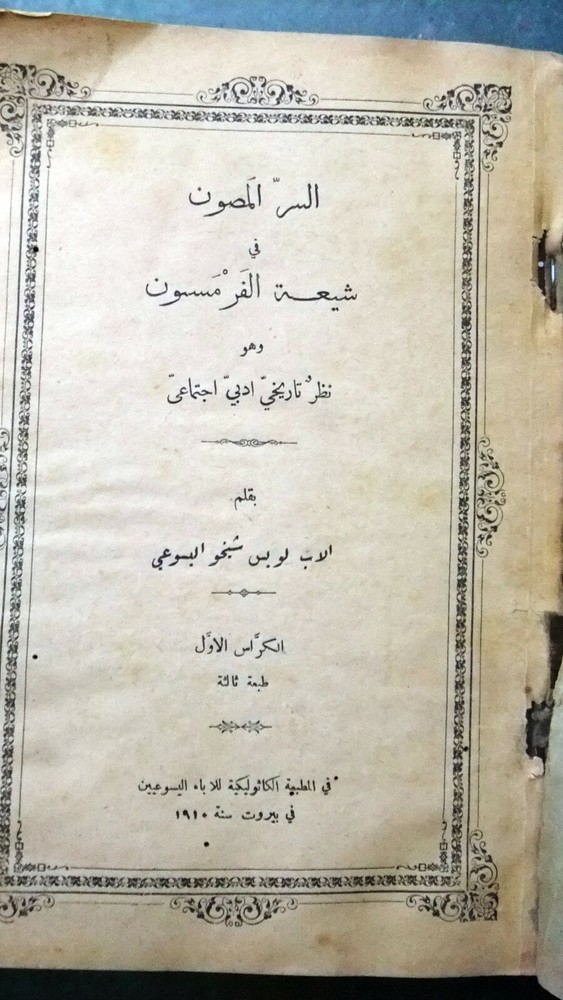 السرّ المَصون
في
شيعة الفَرْمَسون
وهو
نظرٌ تاريخيّ ادبيّ اجتماعيّ
بقلم
الاب لويس شيخو اليسوعي
الكرَّاس الاوَّل
طبعة ثالثة
في المطبعة الكاثوليكية للاباء اليسوعيين
في بيروت سنة ١٩١٠